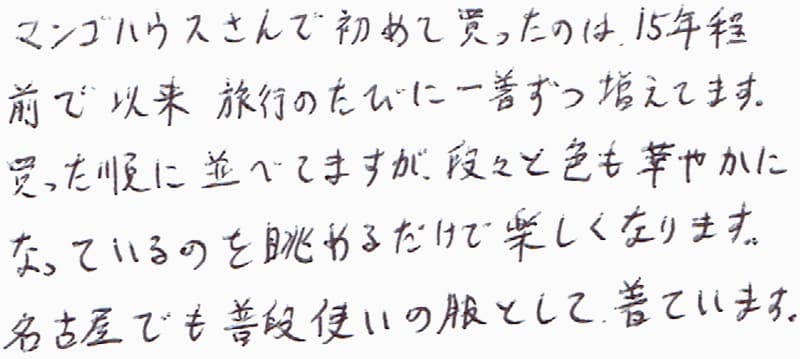 マンゴハウスさんで初めて買ったのは、15年程
前で以来 旅行のたびに一着ずつ増えてます。
買った順に並べてますが、段々と色も華やかに
なっているのを眺めるだけで楽しくなります。
名古屋でも普段使いの服として、着ています。